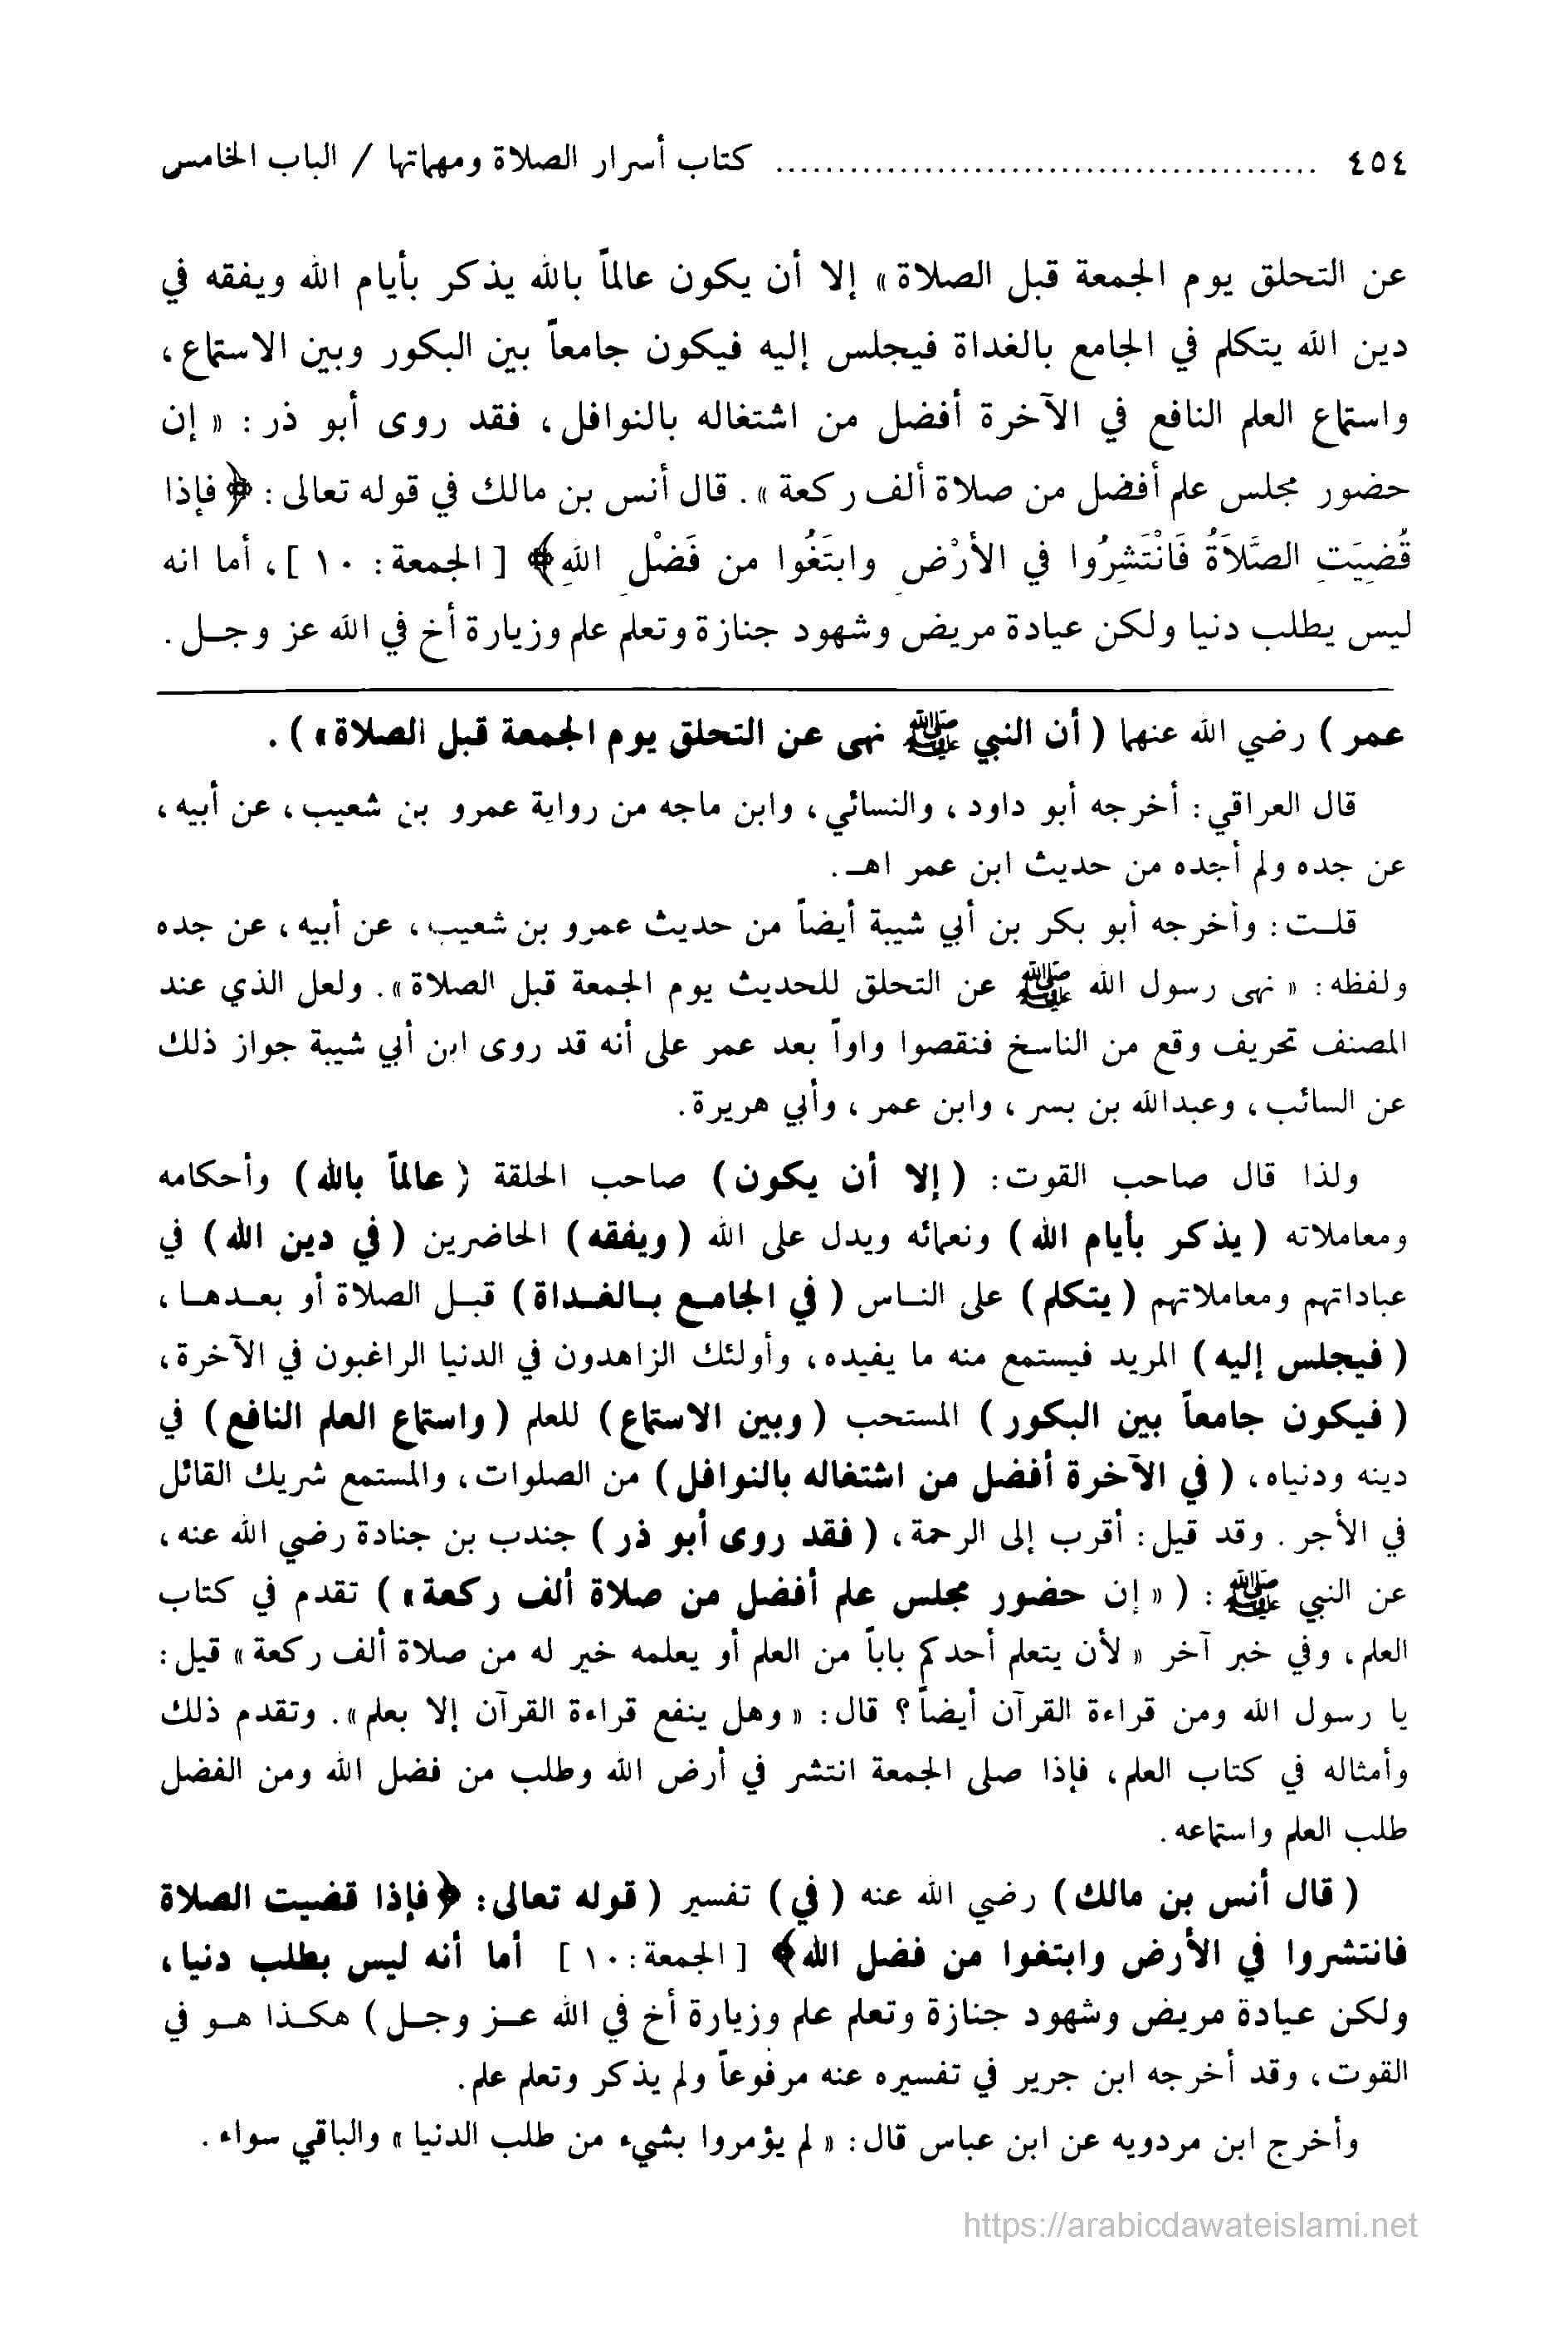 ٤٥٤ ........................................... كتاب أسرار الصلاة ومهماتها / الباب الخامس
عن التحلق يوم الجمعة قبل الصلاة » إلا أن يكون عالماً بالله يذكر بأيام الله ويفقه في
دين الله يتكلم في الجامع بالغداة فيجلس إليه فيكون جامعاً بين البكور وبين الاستماع،
واستماع العلم النافع في الآخرة أفضل من اشتغاله بالنوافل، فقد روى أبو ذر: « إن
حضور مجلس علم أفضل من صلاة ألف ركعة ». قال أنس بن مالك في قوله تعالى: ﴿فإذا
قُضِيَتِ الصَّلاَةُ فَانْتَشِرُوا في الأرْضِ وابتَغُوا من فَضْلِ اللهِ﴾ [ الجمعة: ١٠ ]، أما انه
ليس يطلب دنيا ولكن عيادة مريض وشهود جنازة وتعلم علم وزيارة أخ في الله عز وجـل.
عمر ) رضي الله عنهما ( أن النبي ﷺ نهى عن التحلق يوم الجمعة قبل الصلاة» ).
قال العراقي: أخرجه أبو داود، والنسائي، وابن ماجه من رواية عمرو بن شعيب، عن أبيه،
عن جده ولم أجده من حديث ابن عمر اهـ.
قلـت: وأخرجه أبو بكر بن أبي شيبة أيضاً من حديث عمرو بن شعيب، عن أبيه، عن جده
ولفظه: « نهى رسول الله ﷺ عن التحلق للحديث يوم الجمعة قبل الصلاة». ولعل الذي عند
المصنف تحريف وقع من الناسخ فنقصوا واواً بعد عمر على أنه قد روى ابن أبي شيبة جواز ذلك
عن السائب، وعبدالله بن بسر، وابن عمر، وأبي هريرة.
ولذا قال صاحب القوت: ( إلا أن يكون) صاحب الحلقة ( عالماً بالله) وأحكامه
ومعاملاته ( يذكر بأيام الله ) ونعمائه ويدل على الله ( ويفقه) الحاضرين ( في دين الله ) في
عباداتهم ومعاملاتهم ( يتكلم ) على النـاس ( في الجامـع بـالغـداة ) قبـل الصلاة أو بعـدهـا،
( فيجلس إليه ) المريد فيستمع منه ما يفيده، وأولئك الزاهدون في الدنيا الراغبون في الآخرة،
( فيكون جامعاً بين البكور ) المستحب ( وبين الاستماع ) للعلم ( واستماع العلم النافع ) في
دينه ودنياه، ( في الآخرة أفضل من اشتغاله بالنوافل ) من الصلوات، والمستمع شريك القائل
في الأجر. وقد قيل: أقرب إلى الرحمة، ( فقد روى أبو ذر ) جندب بن جنادة رضي الله عنه،
عن النبي ﷺ: ( « إن حضور مجلس علم أفضل من صلاة ألف ركعة» ) تقدم في كتاب
العلم، وفي خبر آخر « لأن يتعلم أحدكم باباً من العلم أو يعلمه خير له من صلاة ألف ركعة » قيل:
يا رسول الله ومن قراءة القرآن أيضاً؟ قال: « وهل ينفع قراءة القرآن إلا بعلم». وتقدم ذلك
وأمثاله في كتاب العلم، فإذا صلى الجمعة انتشر في أرض الله وطلب من فضل الله ومن الفضل
طلب العلم واستماعه.
( قال أنس بن مالك ) رضي الله عنه ( في ) تفسير ( قوله تعالى: ﴿فإذا قضيت الصلاة
فانتشروا في الأرض وابتغوا من فضل الله﴾ [ الجمعة: ١٠ ] أما أنه ليس بطلب دنيا،
ولكن عيادة مريض وشهود جنازة وتعلم علم وزيارة أخ في الله عـز وجـل ) هكـذا هـو في
القوت، وقد أخرجه ابن جرير في تفسيره عنه مرفوعاً ولم يذكر وتعلم علم.
وأخرج ابن مردويه عن ابن عباس قال: « لم يؤمروا بشيء من طلب الدنيا » والباقي سواء.
https://arabicdawateislami.net